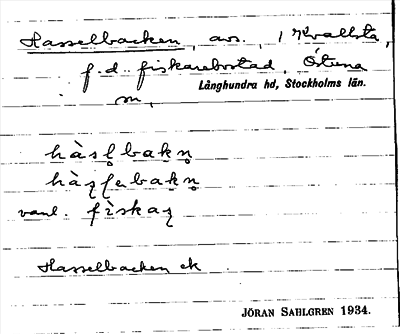 Hasselbacken, avs., i Kvallsta,
f. d. fiskarebostad, Östuna
sn,
Långhundra hd, Stockholms län.
hàsl̥bakn̥
hàʂʃəbakn̥
vanl. fìskaʐ
Hasselbacken ek
JÖRAN SAHLGREN 1934.